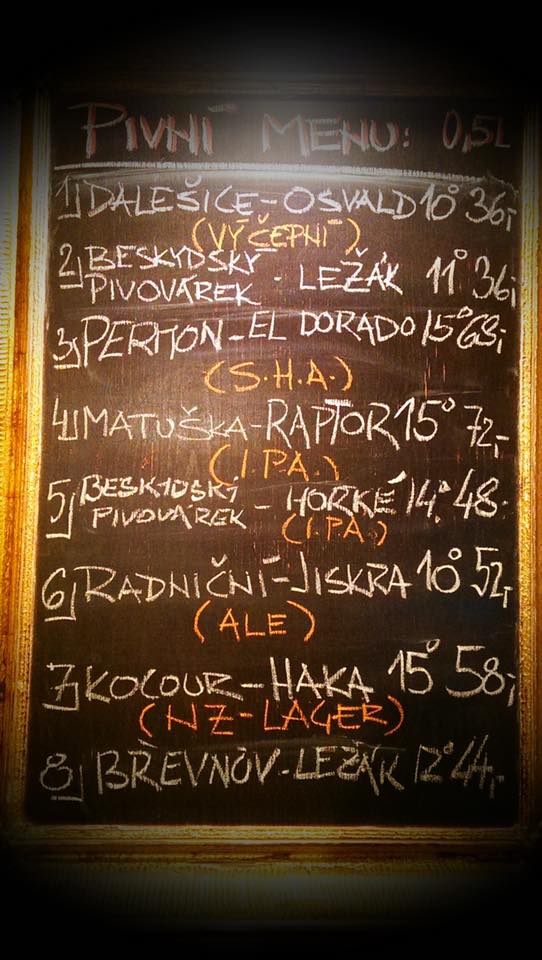 PIVNÍ MENU: 0,5L
1, DALEŠICE - OSVALD 10° 36,-
(VÝČEPNÍ)
2, BESKYDSKÝ PIVOVÁREK - LEŽÁK 11° 36,-
3, PERMON - EL DORADO 15° 68,-
(S.H.A.)
4, MATUŠKA - RAPTOR 15° 72,-
(I.P.A.)
5, BESKYDSKÝ PIVOVÁREK - HORKÉ 14° 48.
(I.P.A.)
6, RADNIČNÍ - JISKRA 10° 52,-
(ALE)
7, KOCOUR - HAKA 15° 58,-
(NZ - LAGER)
8, BŘEVNOV - LEŽÁK 12° 44,-